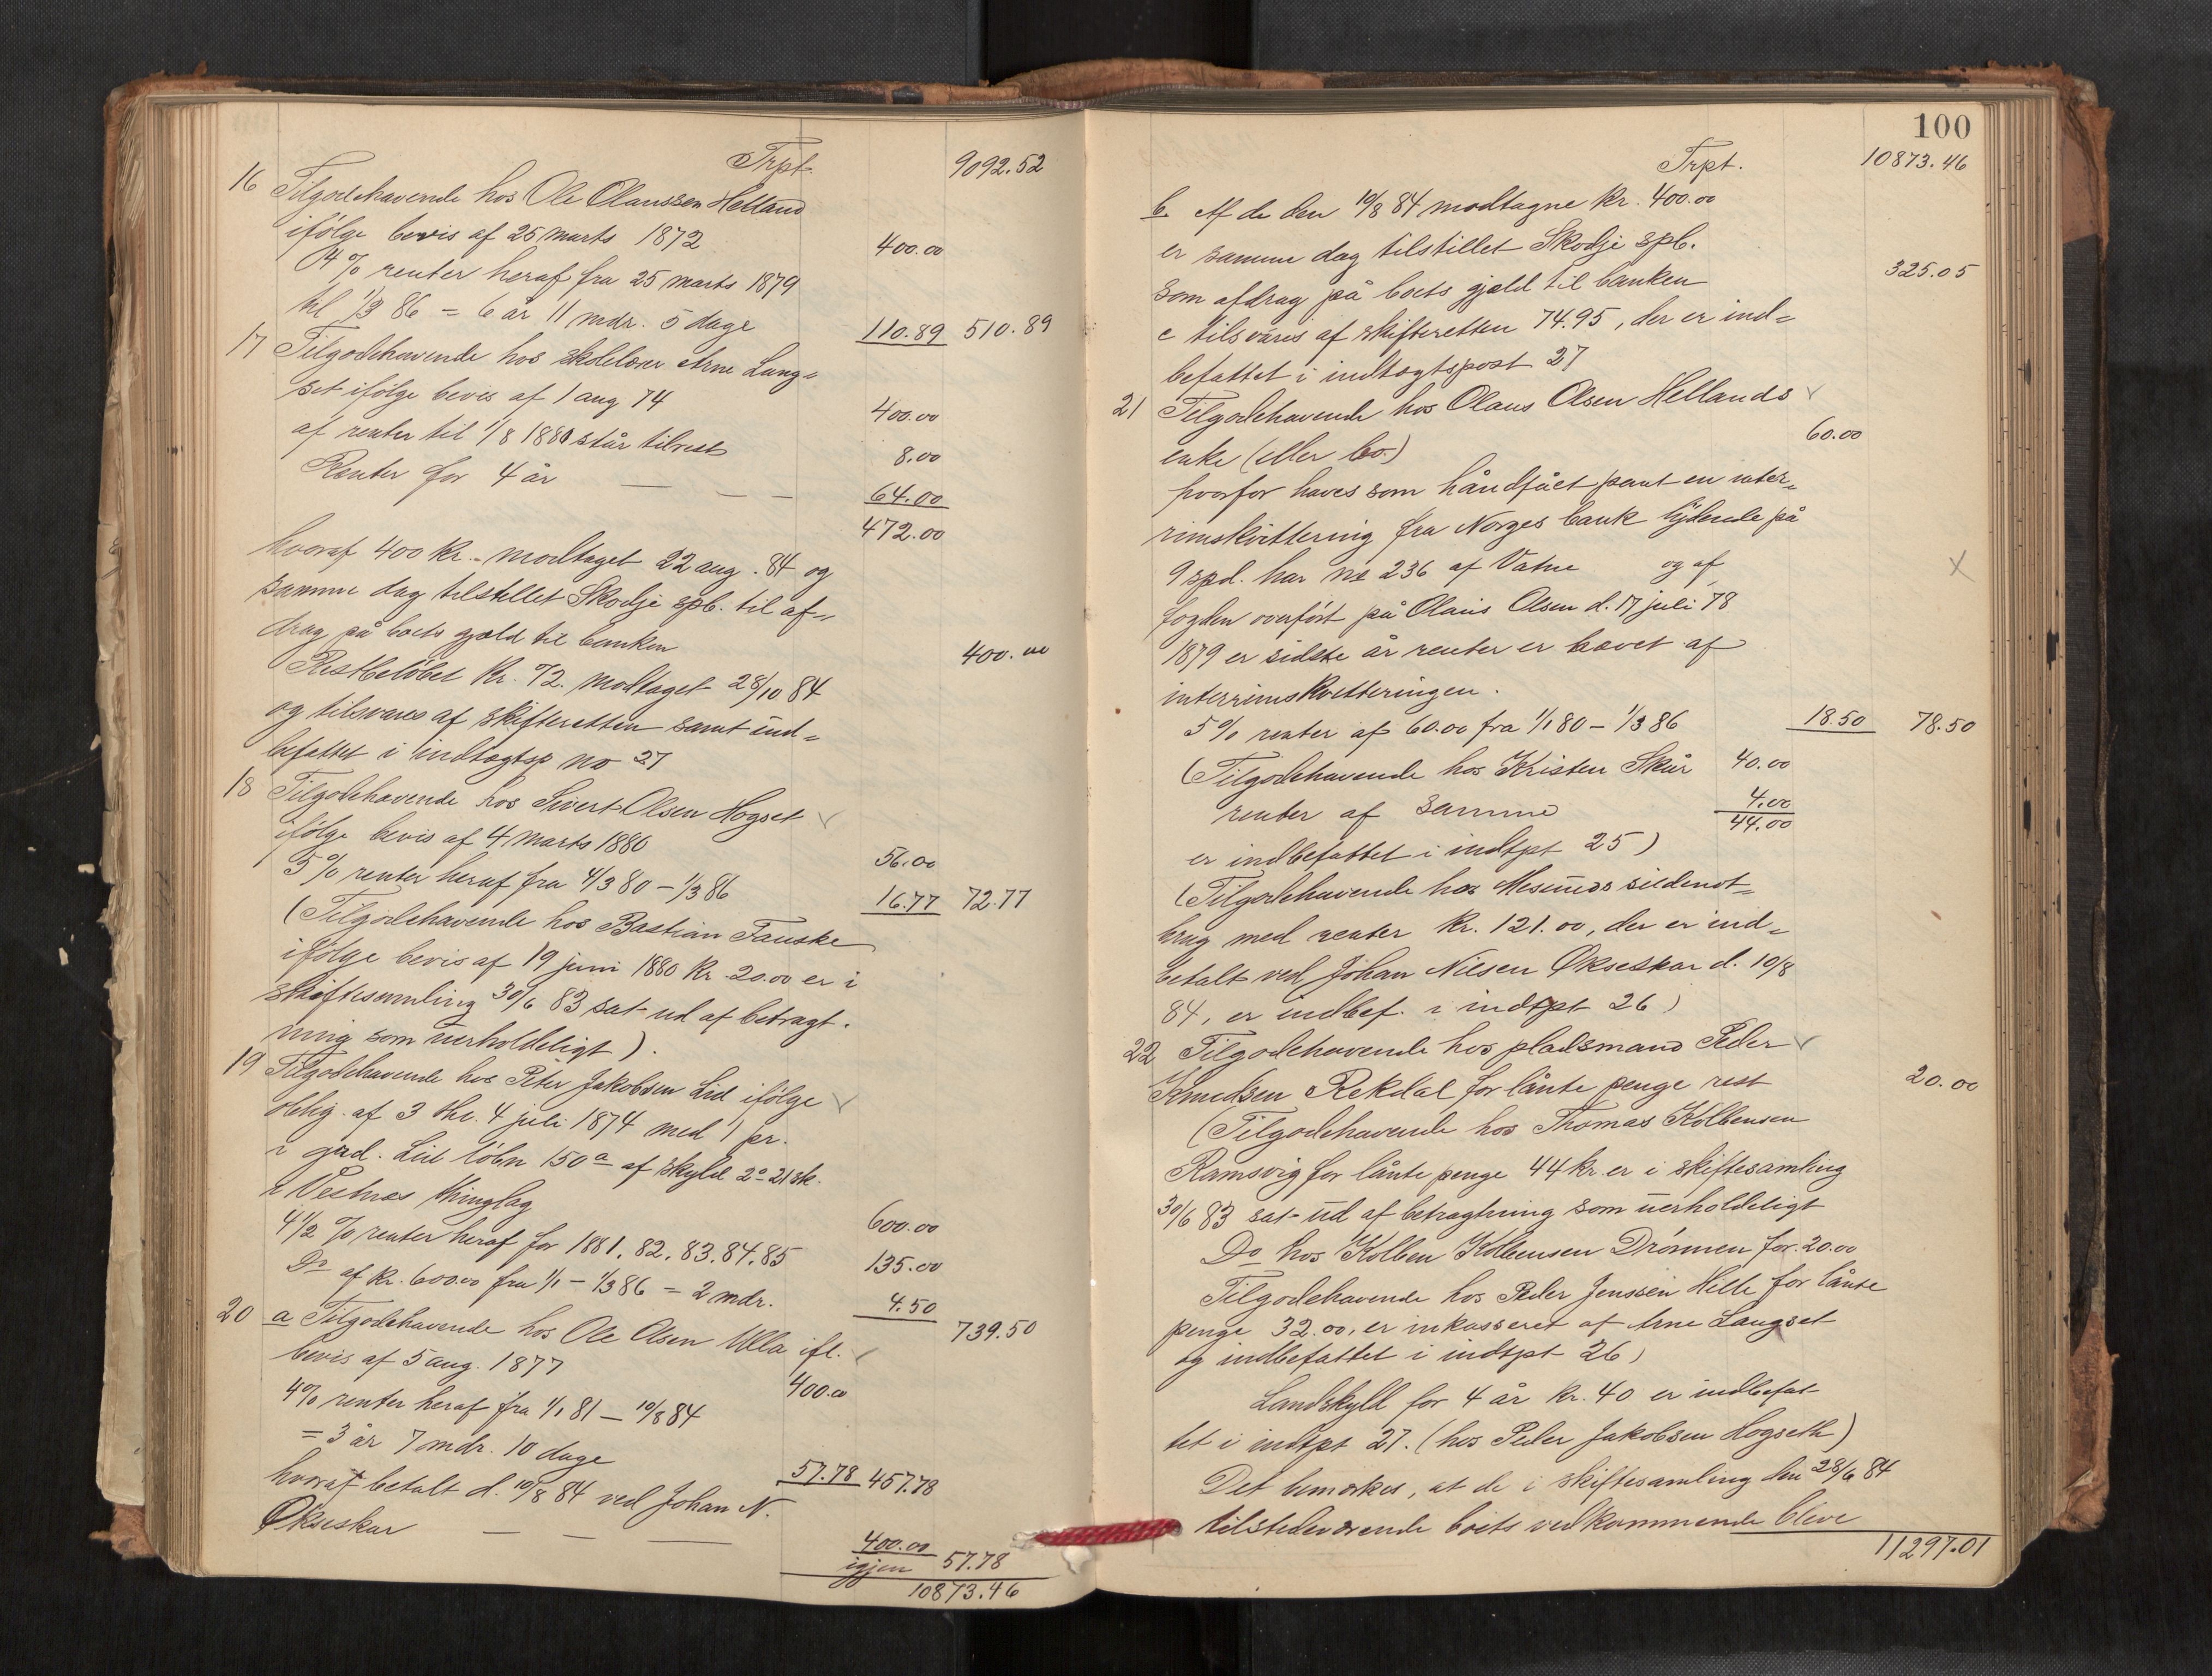 Trpt. 9092.52
16 Tilgodehavende hos Ole Olaussen Helland
ifölge bevis af 25 marts 1872 400.00
4% renter heraf fra 25 marts 1879
til 1/3 86 = 6 år 11 mdr. 5 dage 110.89 510.89
17 Tilgodehavende hos skolelærer Arne Lang=
set ifölge bevis af 1 aug 74 400.00
af renter til 1/8 1880 står tilrest 8.00
Renter for 4 år — — — 64.00
472.00
hvoraf 400 kr. modtaget 22 aug. 84 og
samme dag tilstillet Skodje spb. til af=
drag på boets gjæld til banken 400.00
Restbelöbet kr. 72. modtaget 28/10 84
og tilsvares af skifteretten samt ind=
befattet i indtægtsp no 27
18 Tilgodehavende hos Sivert Olsen Hogset ✓
ifölge bevis af 4 marts 1880 56.00
5% renter heraf fra 4/3 80 – 1/3 86 16.77 72.77
(Tilgodehavende hos Bastian Fauske
ifölge bevis af 19 juni 1880 kr. 20.00 er i
skiftesamling 30/6 83 sat ud af betragt.
ning som uerholdeligt).
19 Tilgodehavende hos Peter Jakobsen Lid ifölge ✓
oblig. af 3 thl. 4 juli 1874 med 1 pr.
i grd. Lid löbn 150a af skyld 2-21 sk.
i Vestnæs thinglag 600.00
4 1/2 % renter heraf for 1881. 82. 83. 84. 85 135.00
Do af kr. 600.00 fra 1/1 – 1/3 86 = 2 mdr. 4.50
739.50
20 a Tilgodehavende hos Ole Olsen Ulla ifl. ✓
bevis af 5 aug. 1877 400.00
4% renter heraf fra 1/1 81 – 10/8 84
= 3 år 7 mdr. 10 dage 57.78 457.78
hvoraf betalt d. 10/8 84 ved Johan N.
Økseskar — — — 400.00
igjen 57.78
10873.46
100
Trpt. 10873.46
b. Af de den 10/8 84 modtagne kr. 400.00
er samme dag tilstillet Skodje spb.
som afdrag på boets gjæld til banken 325.05
c tilsvares af skifteretten 74.95, der er ind=
befattet i indtægtspost 27
21 Tilgodehavende hos Olaus Olsen Hellands ✓
enke (eller bo) 60.00
hvorfor haves som håndfået pant en inter=
rimskvittering fra Norges bank lydende på
9 spd. har no 236 af Vatne og af
fogden overfört på Olaus Olsen d. 17 juli 78 X
1879 er sidste år renter er hævet af
interrimskvitteringen.
5% renter af 60.00 fra 1/1 80 – 1/3 86 18.50 78.50
(Tilgodehavende hos Kristen Skår 40.00
renter af samme 4.00
44.00
er indbefattet i indtpt 25)
(Tilgodehavende hos Mesunds sildenot=
brug med renter kr. 121.00, der er ind=
betalt ved Johan Nilsen Økseskar d. 10/8
84, er indbef. i indtpt 26)
22 Tilgodehavende hos pladsmand Peder ✓
Knudsen Rekdal for lånte penge rest 20.00
(Tilgodehavende hos Thomas Kolbensen
Ramsvig for lånte penge 44 kr er i skiftesamling
30/6 83 sat ud af betragtning som uerholdeligt
Do hos Kolben Kolbensen Drönnen for 20.00
Tilgodehavende hos Peder Jenssen Helle for lånte
penge 32.00, er inkasseret af Arne Langset
og indbefattet i indtpt 26)
Landskyld for 4 år kr. 40 er indbefat
tet i indtpt 27. (hos Peder Jakobsen Hogseth)
Det bemærkes, at de i skiftesamling den 28/6 84
tilstedeværende boets vedkommende bleve
11297.01